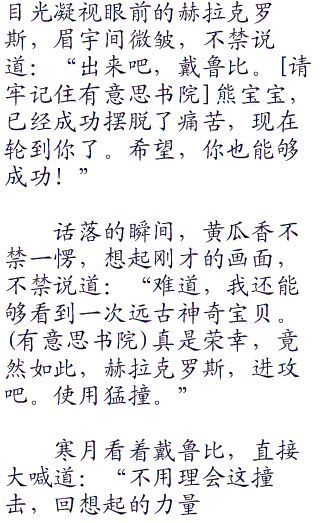 目光凝视眼前的赫拉克罗
斯，眉宇间微皱，不禁说
道：“出来吧，戴鲁比。[请
牢记住有意思书院]熊宝宝，
已经成功摆脱了痛苦，现在
轮到你了。希望，你也能够
成功！”
话落的瞬间，黄瓜香不
禁一愣，想起刚才的画面，
不禁说道：“难道，我还能
够看到一次远古神奇宝贝。
(有意思书院)真是荣幸，竟
然如此，赫拉克罗斯，进攻
吧。使用猛撞。”
寒月看着戴鲁比，直接
大喊道：“不用理会这撞
击，回想起的力量